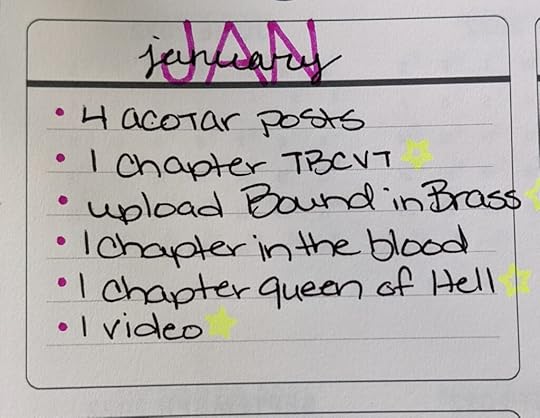 JAN
january
• 4 ACOTAR posts
• 1 chapter TBCVT
• upload Bound in Brass
• 1 chapter in the blood
• 1 chapter queen of Hell
• 1 video